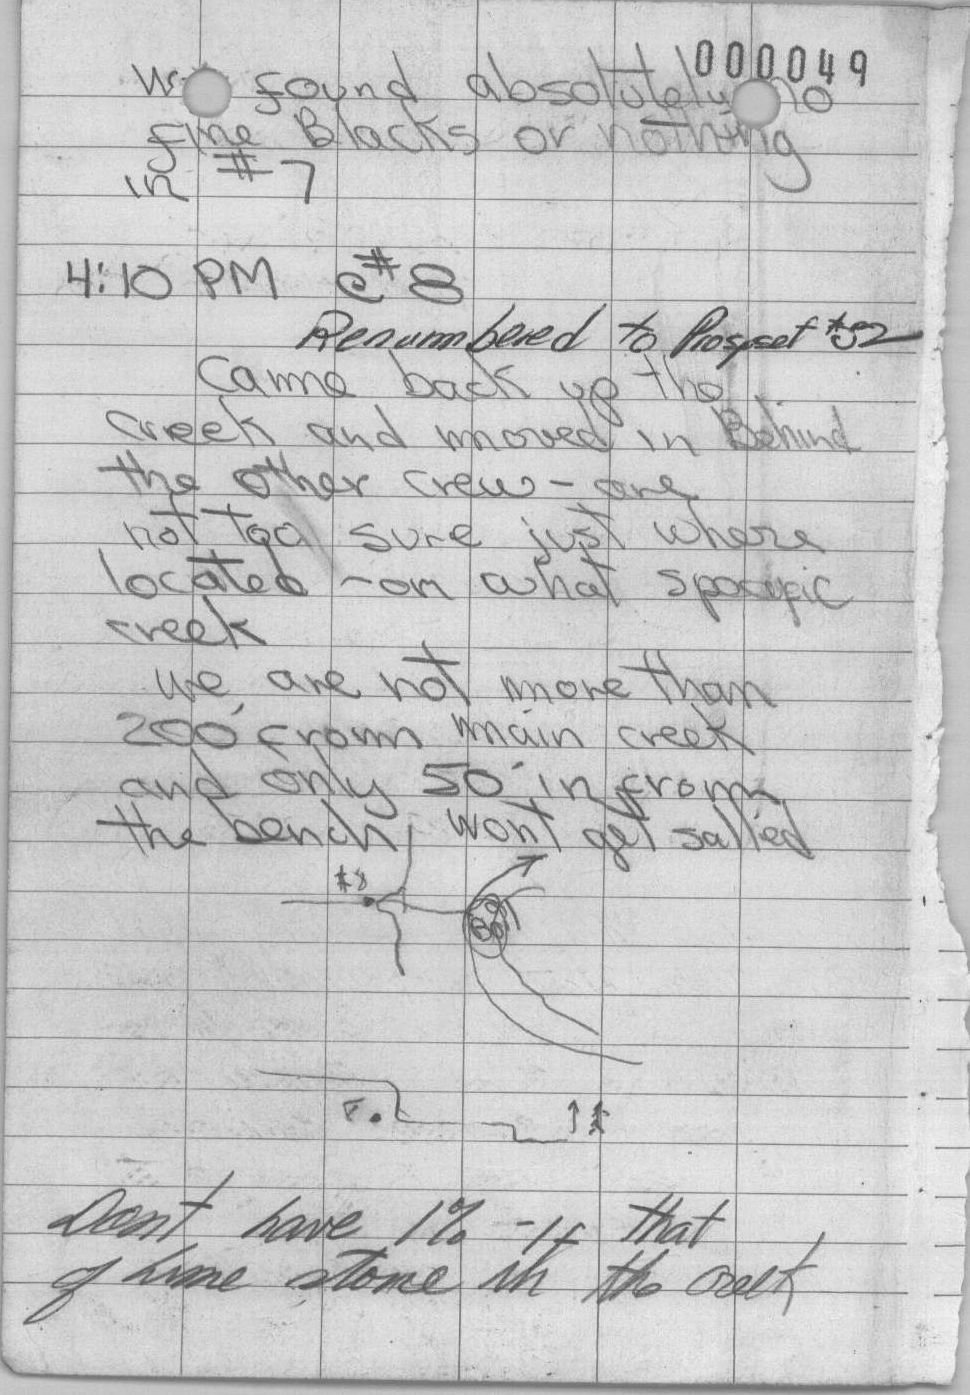 000049
We found absolutely no
fine Blacks or nothing
in #7
4:10 PM @ #8
Renumbered to Prospect #52
Came back up the
creek and moved in Behind
the other crew - are
not too sure just where
located - on what specific
creek
we are not more than
200' from main creek
and only 50' in from
the bench, wont get salted
#8
F.
Dont have 1% - if that
of lime stone in the creek